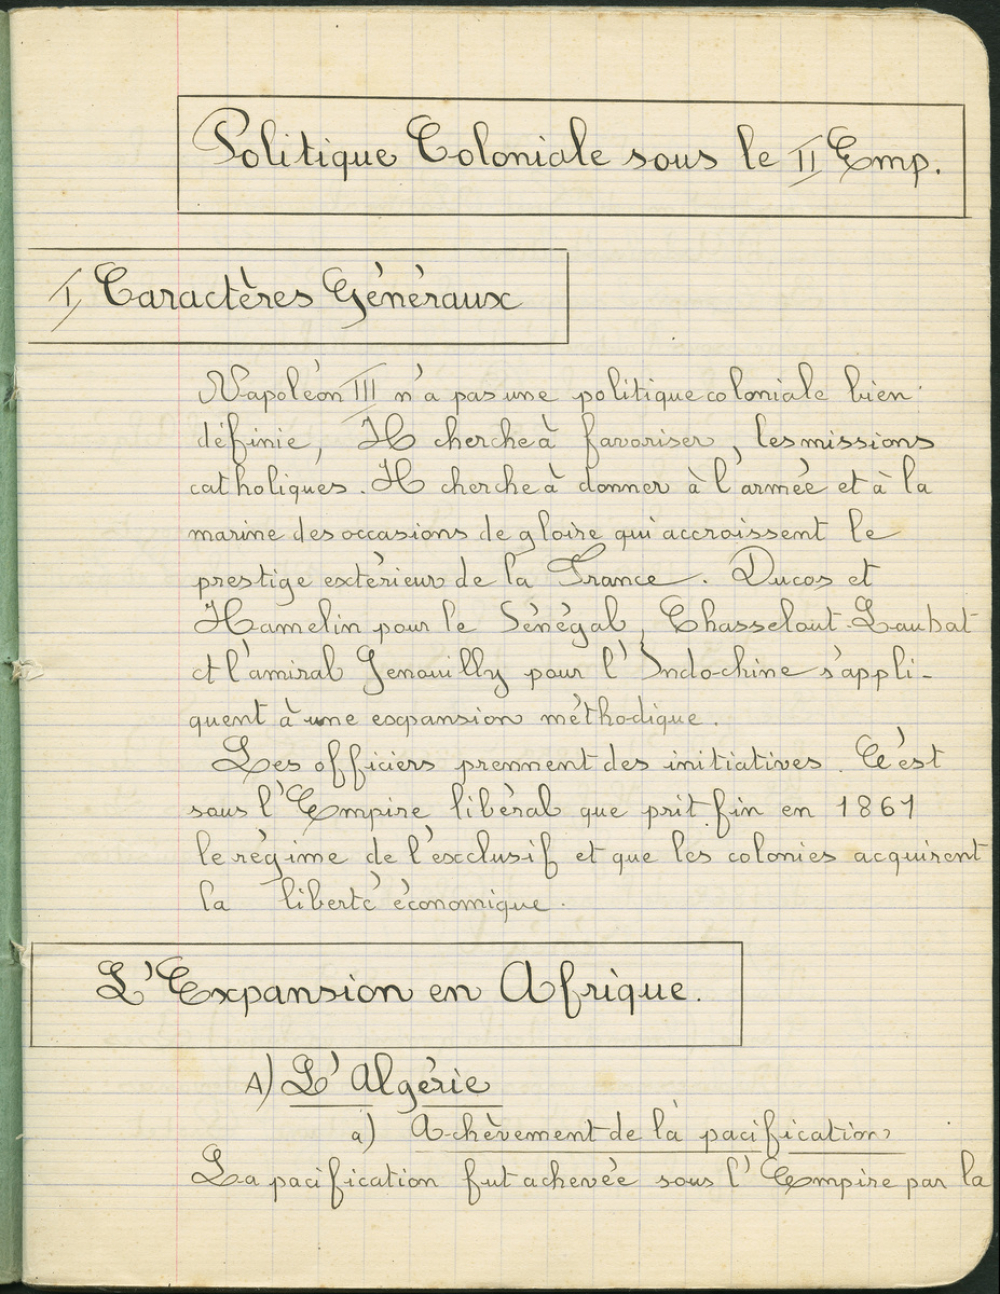 Politique Coloniale sous le II Emp.
I, Caractères Généraux
Napoléon III n'a pas une politique coloniale bien
définie, Il cherche à favoriser, les missions
catholiques. Il cherche à donner à l'armée et à la
marine des occasions de gloire qui accroissent le
prestige extérieur de la France. Ducos et
Hamelin pour le Sénégal, Chasselout-Laubat
et l'amiral Genouilly pour l'Indo-chine s'appli-
quent à une expansion méthodique.
Les officiers prennent des initiatives. C'est
sous l'Empire libéral que prit fin en 1861
le régime de l'exclusif et que les colonies acquirent
la liberté économique.
L'Expansion en Afrique.
A) L'Algérie
a) Achèvement de la pacification
La pacification fut achevée sous l'Empire par la